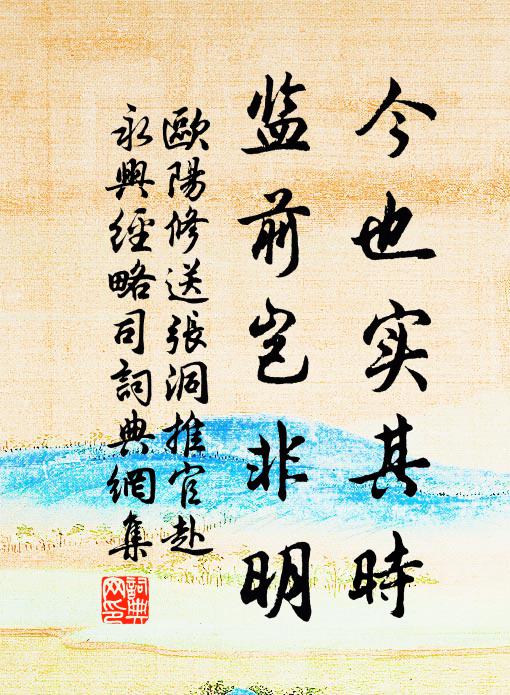 今也实其時
监前岂非明
歐陽修送張洞推官赴
永興經略司詞典網集
詞典